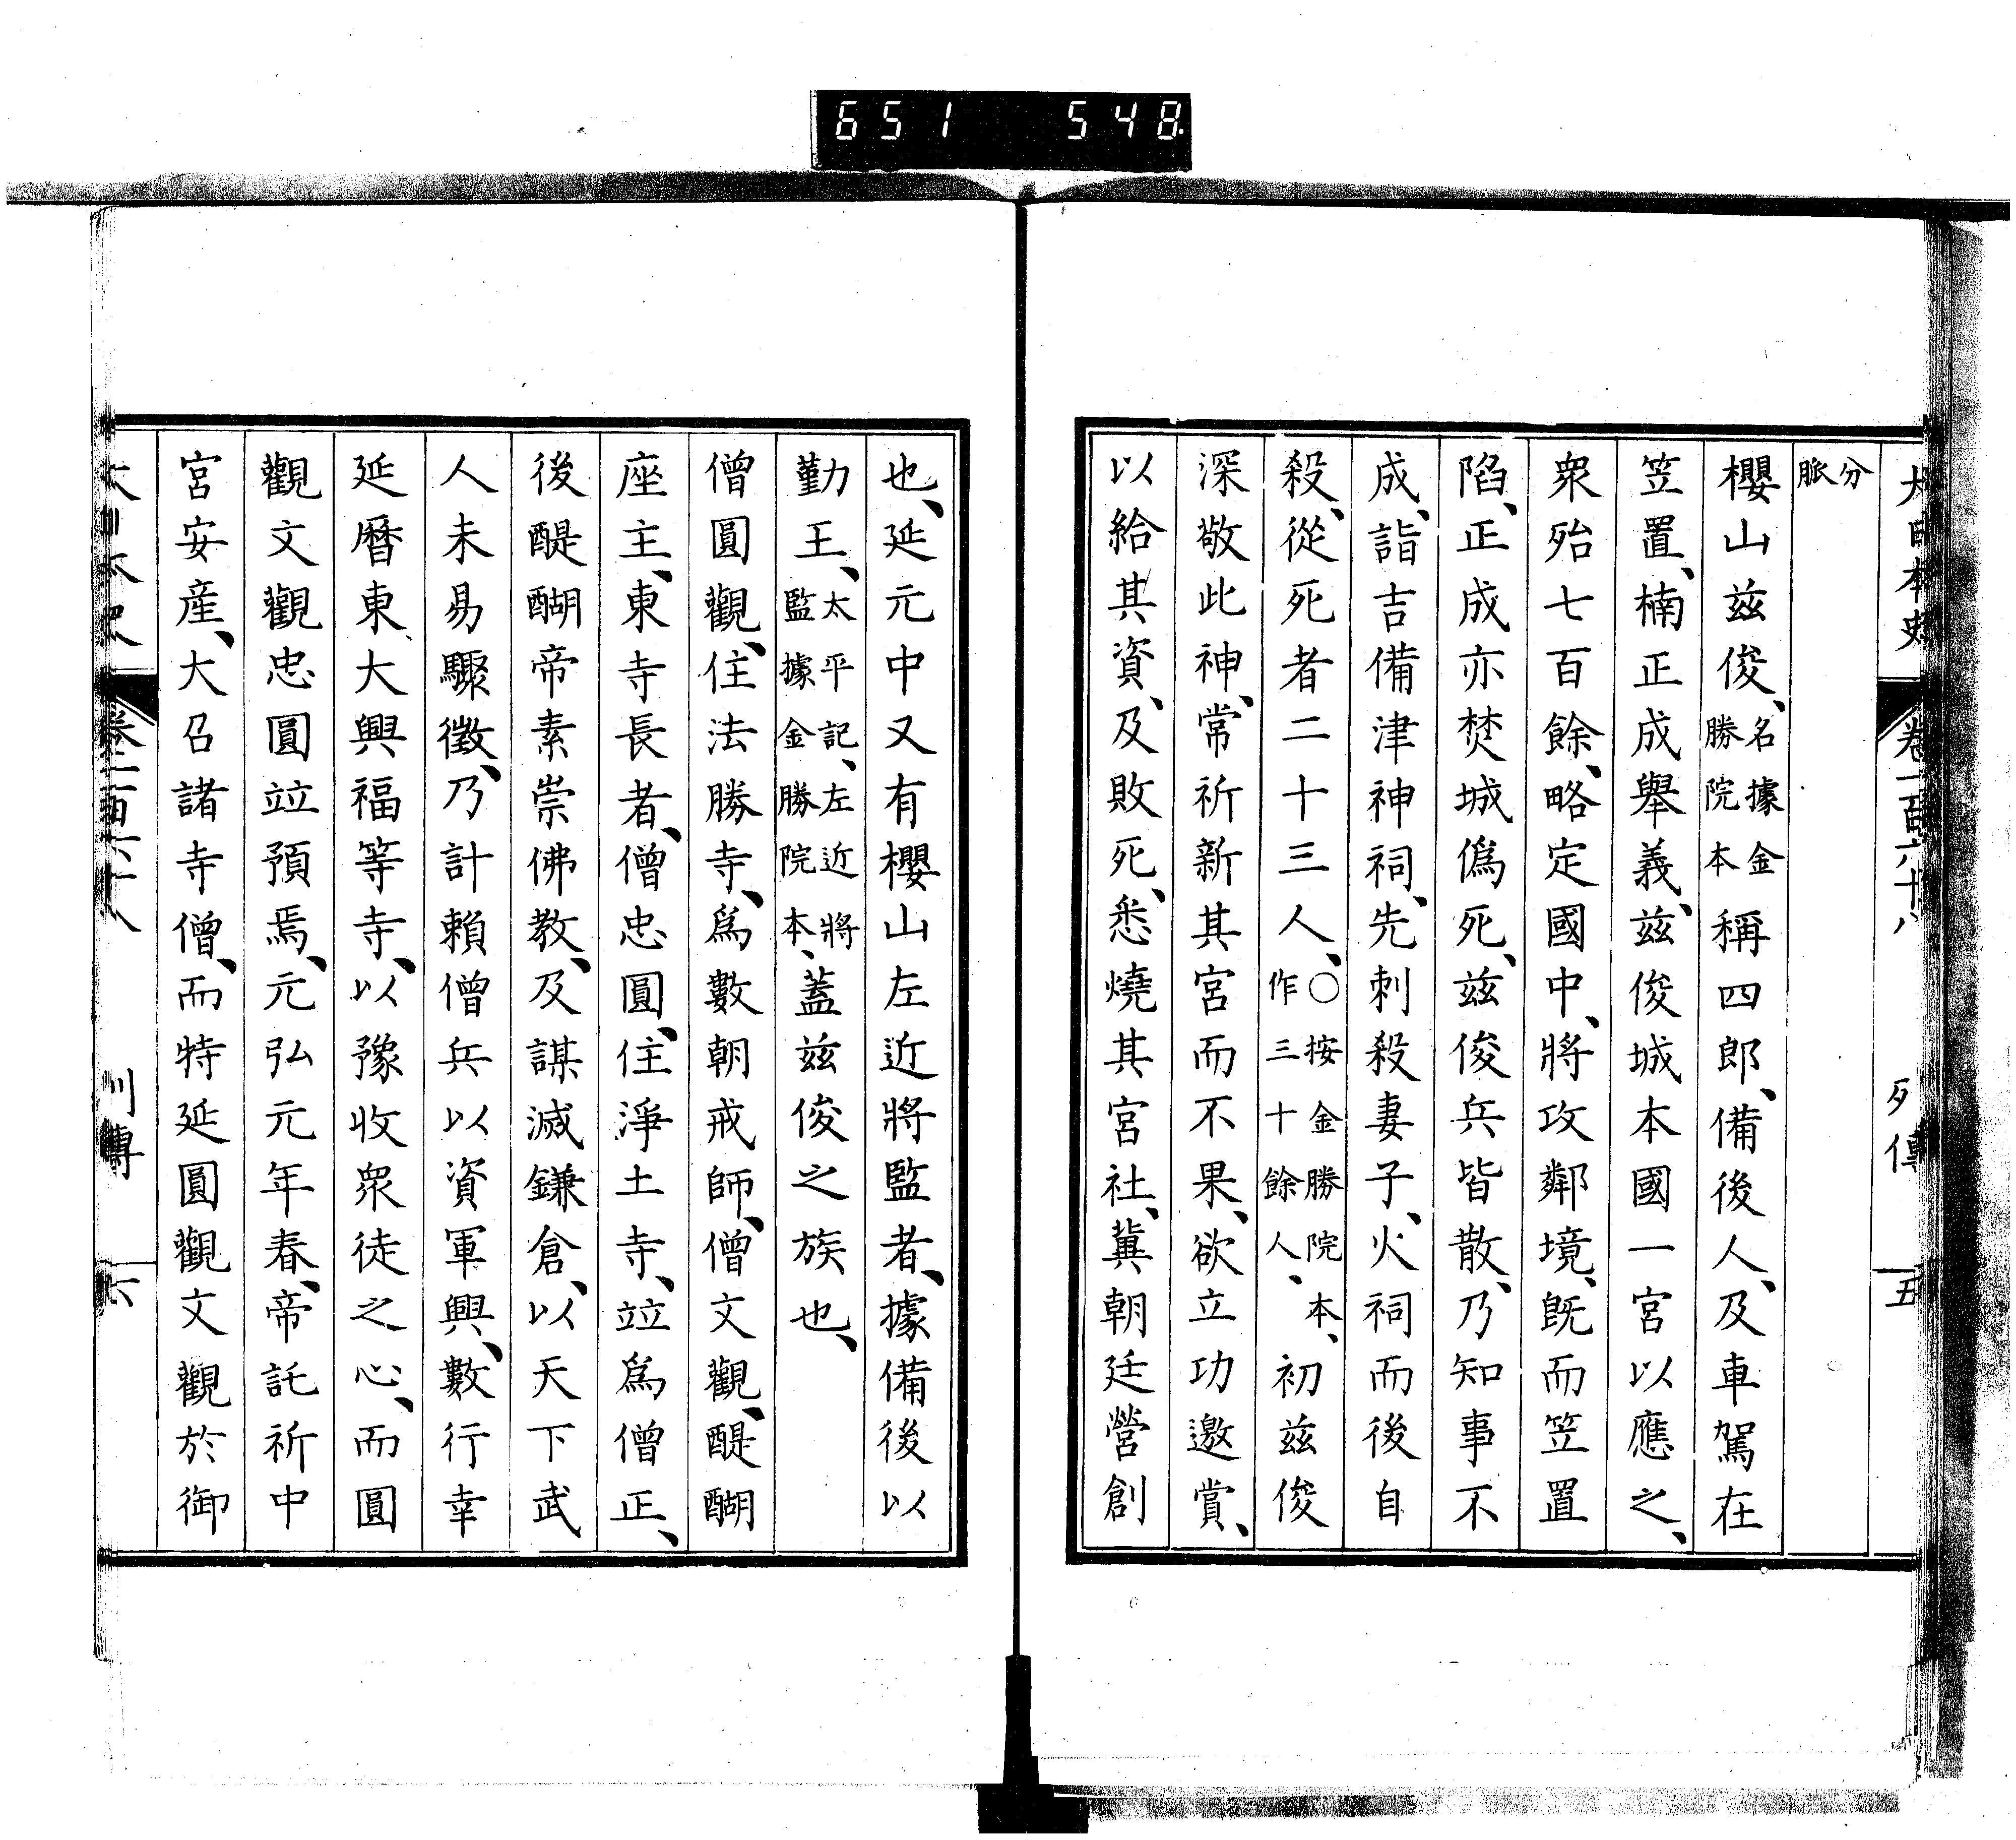 651 548
大日本史 卷一百六十八 列傳 五
分脈
櫻山玆俊、名據金勝院本稱四郎、備後人、及車駕在
笠置、楠正成舉義、玆俊城本國一宮以應之、
衆殆七百餘、略定國中、將攻鄰境、旣而笠置
陷、正成亦焚城僞死、玆俊兵皆散、乃知事不
成、詣吉備津神祠、先刺殺妻子、火祠而後自
殺、從死者二十三人、○按金勝院本、作三十餘人、初玆俊
深敬此神、常祈新其宮而不果、欲立功邀賞、
以給其資、及敗死、悉燒其宮社、冀朝廷營創
也、延元中又有櫻山左近將監者、據備後以
勤王、太平記、左近將監據金勝院本、蓋玆俊之族也、
僧圓觀、住法勝寺、爲數朝戒師、僧文觀、醍醐
座主、東寺長者、僧忠圓、住淨土寺、竝爲僧正、
後醍醐帝素崇佛教、及謀滅鎌倉、以天下武
人未易驟徵、乃計賴僧兵以資軍興、數行幸
延曆東大興福等寺、以豫收衆徒之心、而圓
觀文觀忠圓竝預焉、元弘元年春、帝託祈中
宮安産、大召諸寺僧、而特延圓觀文觀於御
大日本史 卷一百六十八 列傳 六